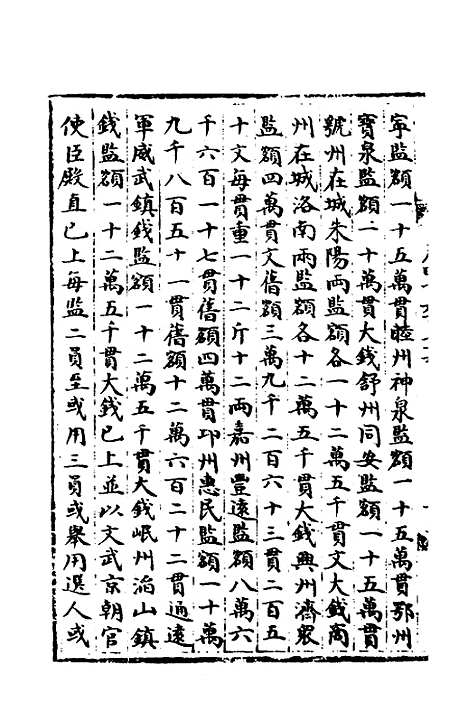 寕監額一十五萬貫睦州神泉監額一十五萬貫鄂州
寳泉監額二十萬貫大錢舒州同安監額一十五萬貫
虢州在城朱陽兩監額各一十二萬五千貫文大錢商
州在城洛南兩監額各十二萬五千貫大錢興州濟衆
監額四萬貫文舊額三萬九千二百六十三貫二百五
十文每貫重一十二斤十二兩嘉州豐遠監額八萬六
千六百一十七貫舊額四萬貫邛州惠民監額一十萬
九千八百五十一貫舊額十二萬六百二十二貫通遠
軍威武鎮錢監額一十二萬五千貫大錢岷州滔山鎮
錢監額一十二萬五千貫大錢已上並以文武京朝官
使臣殿直已上每監二員至或用三員或舉用選人或